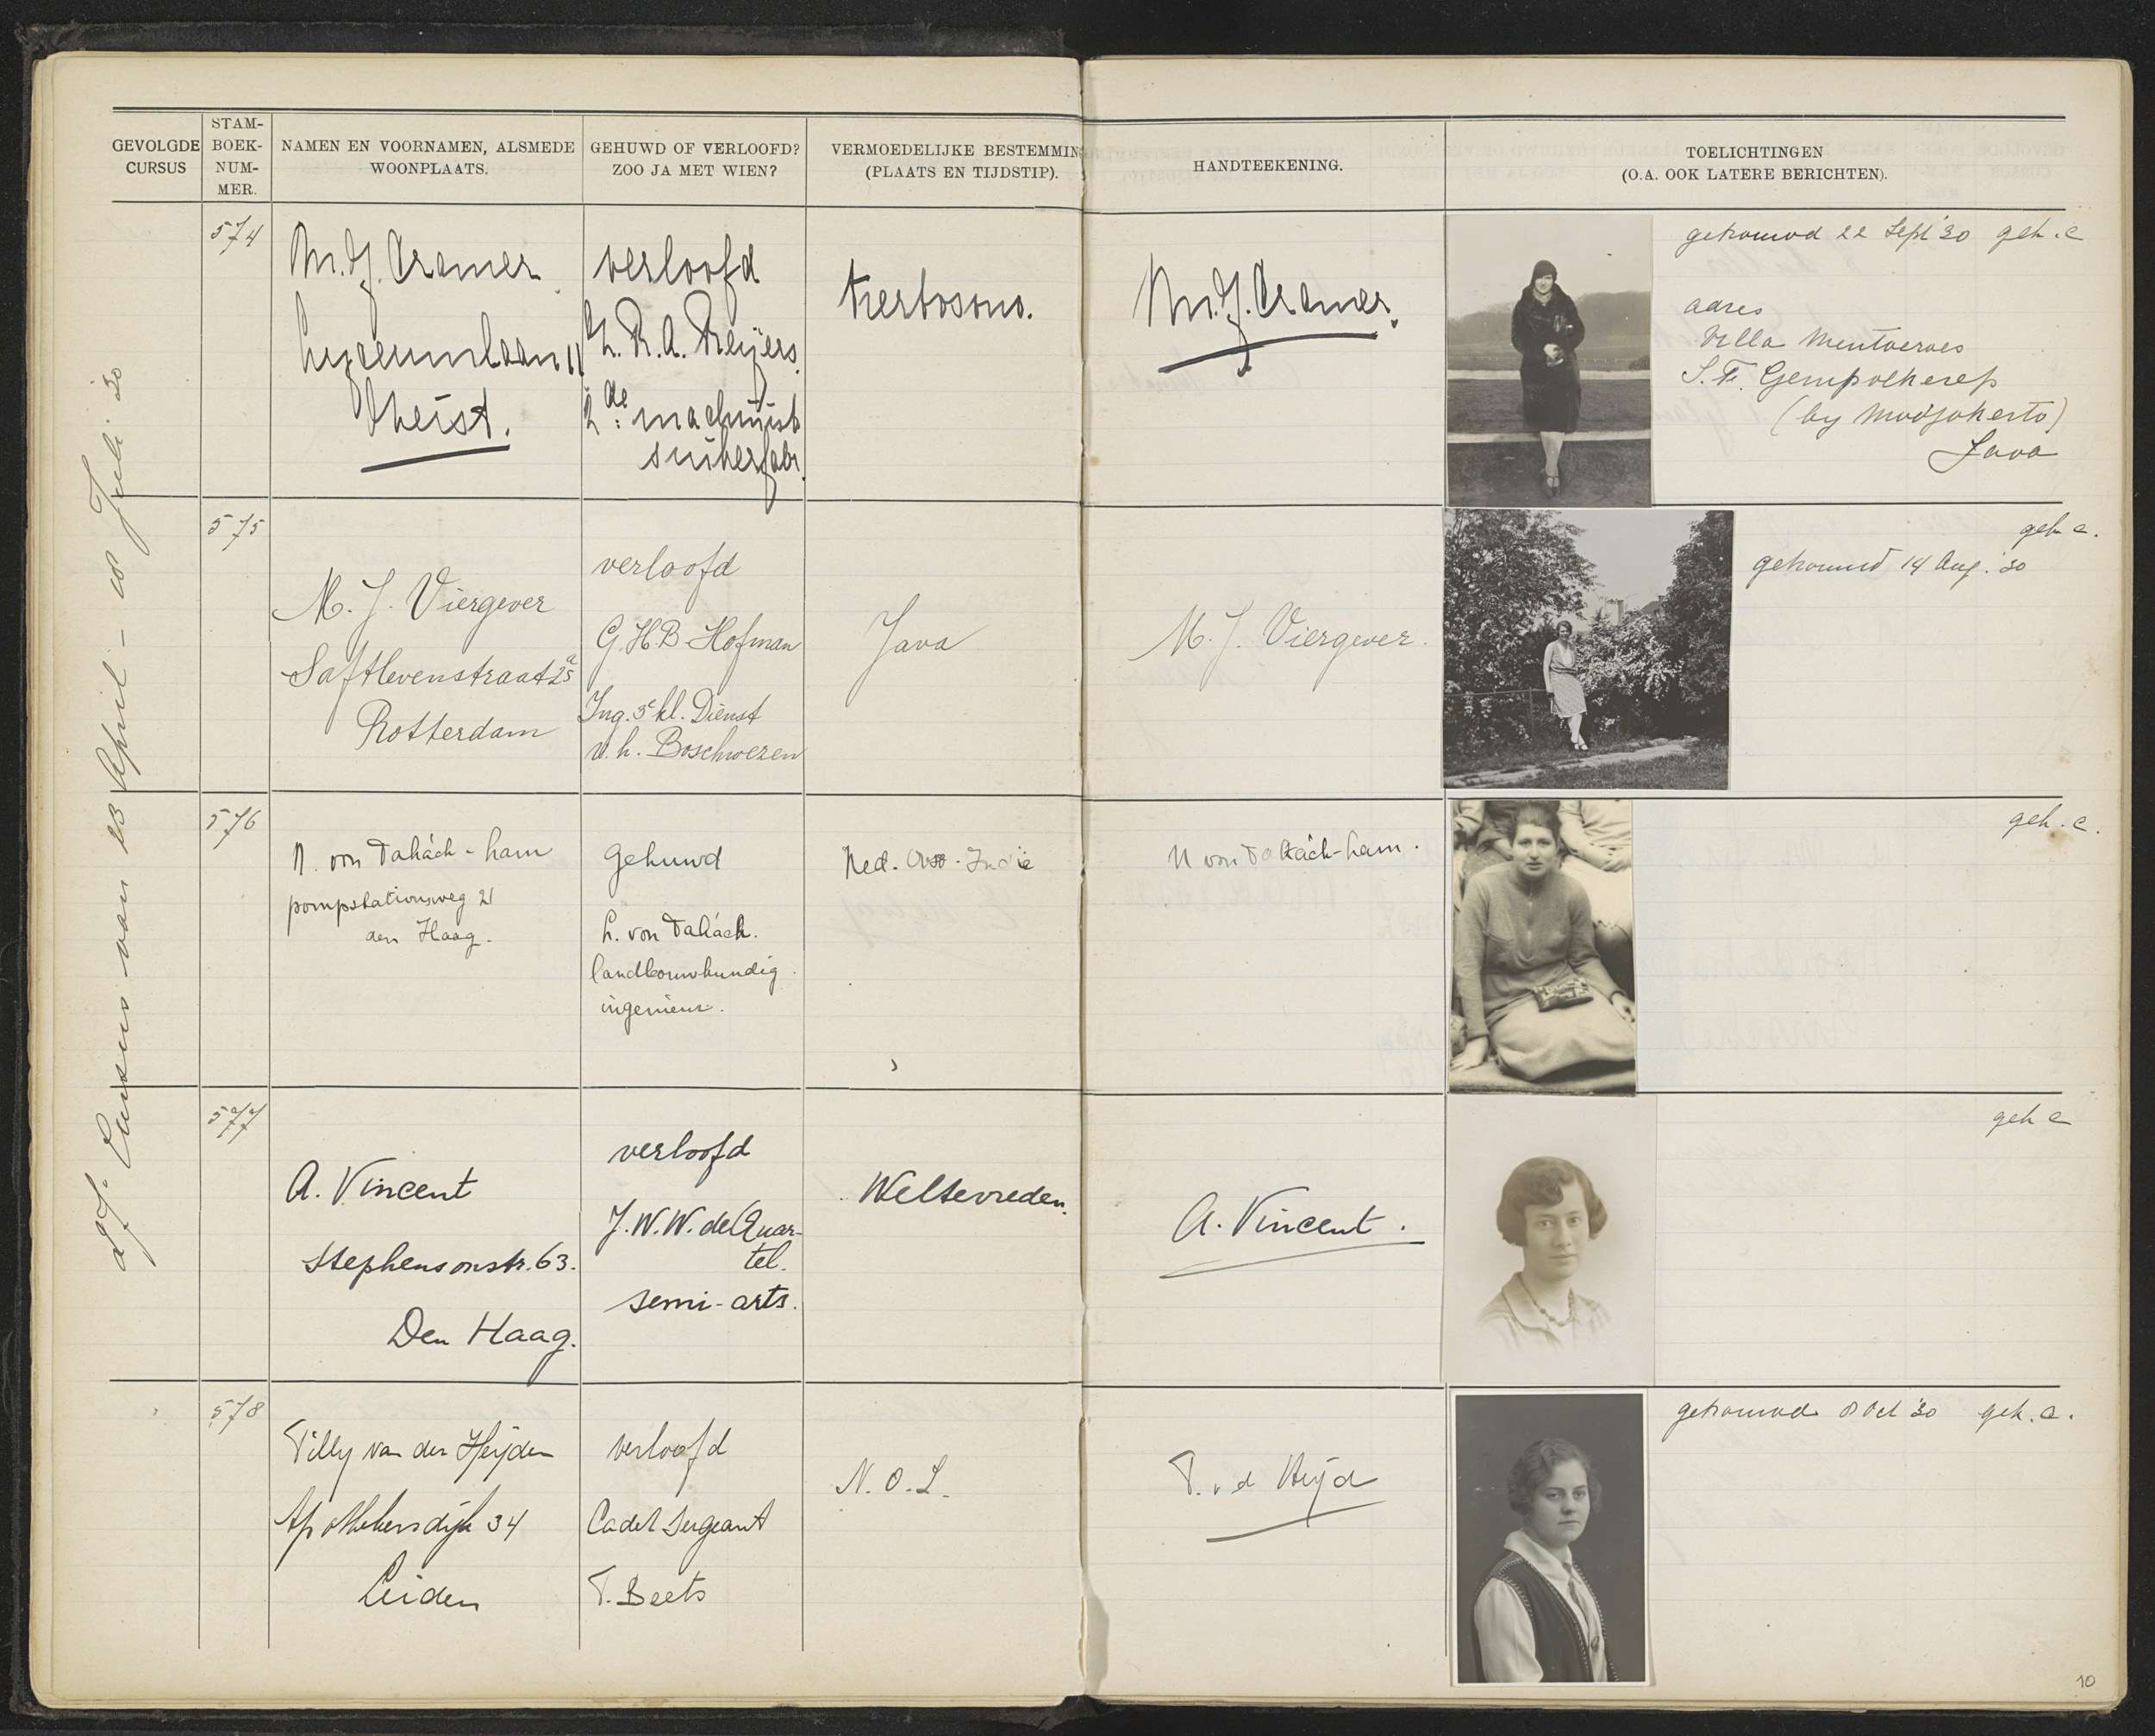 GEVOLGDE
CURSUS
STAM-
BOEK-
NUM-
MER.
NAMEN EN VOORNAMEN, ALSMEDE
WOONPLAATS.
GEHUWD OF VERLOOFD?
ZOO JA MET WIEN?
VERMOEDELIJKE BESTEMMING
(PLAATS EN TIJDSTIP).
HANDTEEKENING.
TOELICHTINGEN
(O.A. OOK LATERE BERICHTEN).
Cursus van 23 April - 8 Juli '30
574
M.J. Cramer
Lyceumlaan 11
Zheist.
verloofd
R.A. Reijers.
2de machinist
suikerfabr.
Kertosono.
M.J. Cramer.
getrouwd 22 Sept '30 geh. c
adres
Villa
S.F. Gempolkerep
(by Modjokerto)
Java
575
M. J. Viergever
Saftlevenstraat 25a
Rotterdam
verloofd
G.H.B. Hofman
Ing. 3e kl. Dienst
v.h. Boschwezen
Java
M. J. Viergever.
geh c.
getrouwd 14 Aug. '30
576
N. von Takách-ham
pompstationsweg 21
den Haag.
gehuwd
L. von Takách.
landbouwkundig
ingenieur.
Ned. Oost-Indië
N von Takách-ham.
geh. c.
577
A. Vincent
Stephensonstr. 63.
Den Haag.
verloofd
J.W.W. del Quar-
tel.
semi-arts.
Weltevreden.
A. Vincent.
geh c
578
Tilly van der Heijden
Apothekersdijk 34
Leiden
verloofd
Cadet Sergeant
T. Beets
N. O. I.
T. v d Heijd
getrouwd 8 Oct '30 geh. c.
10